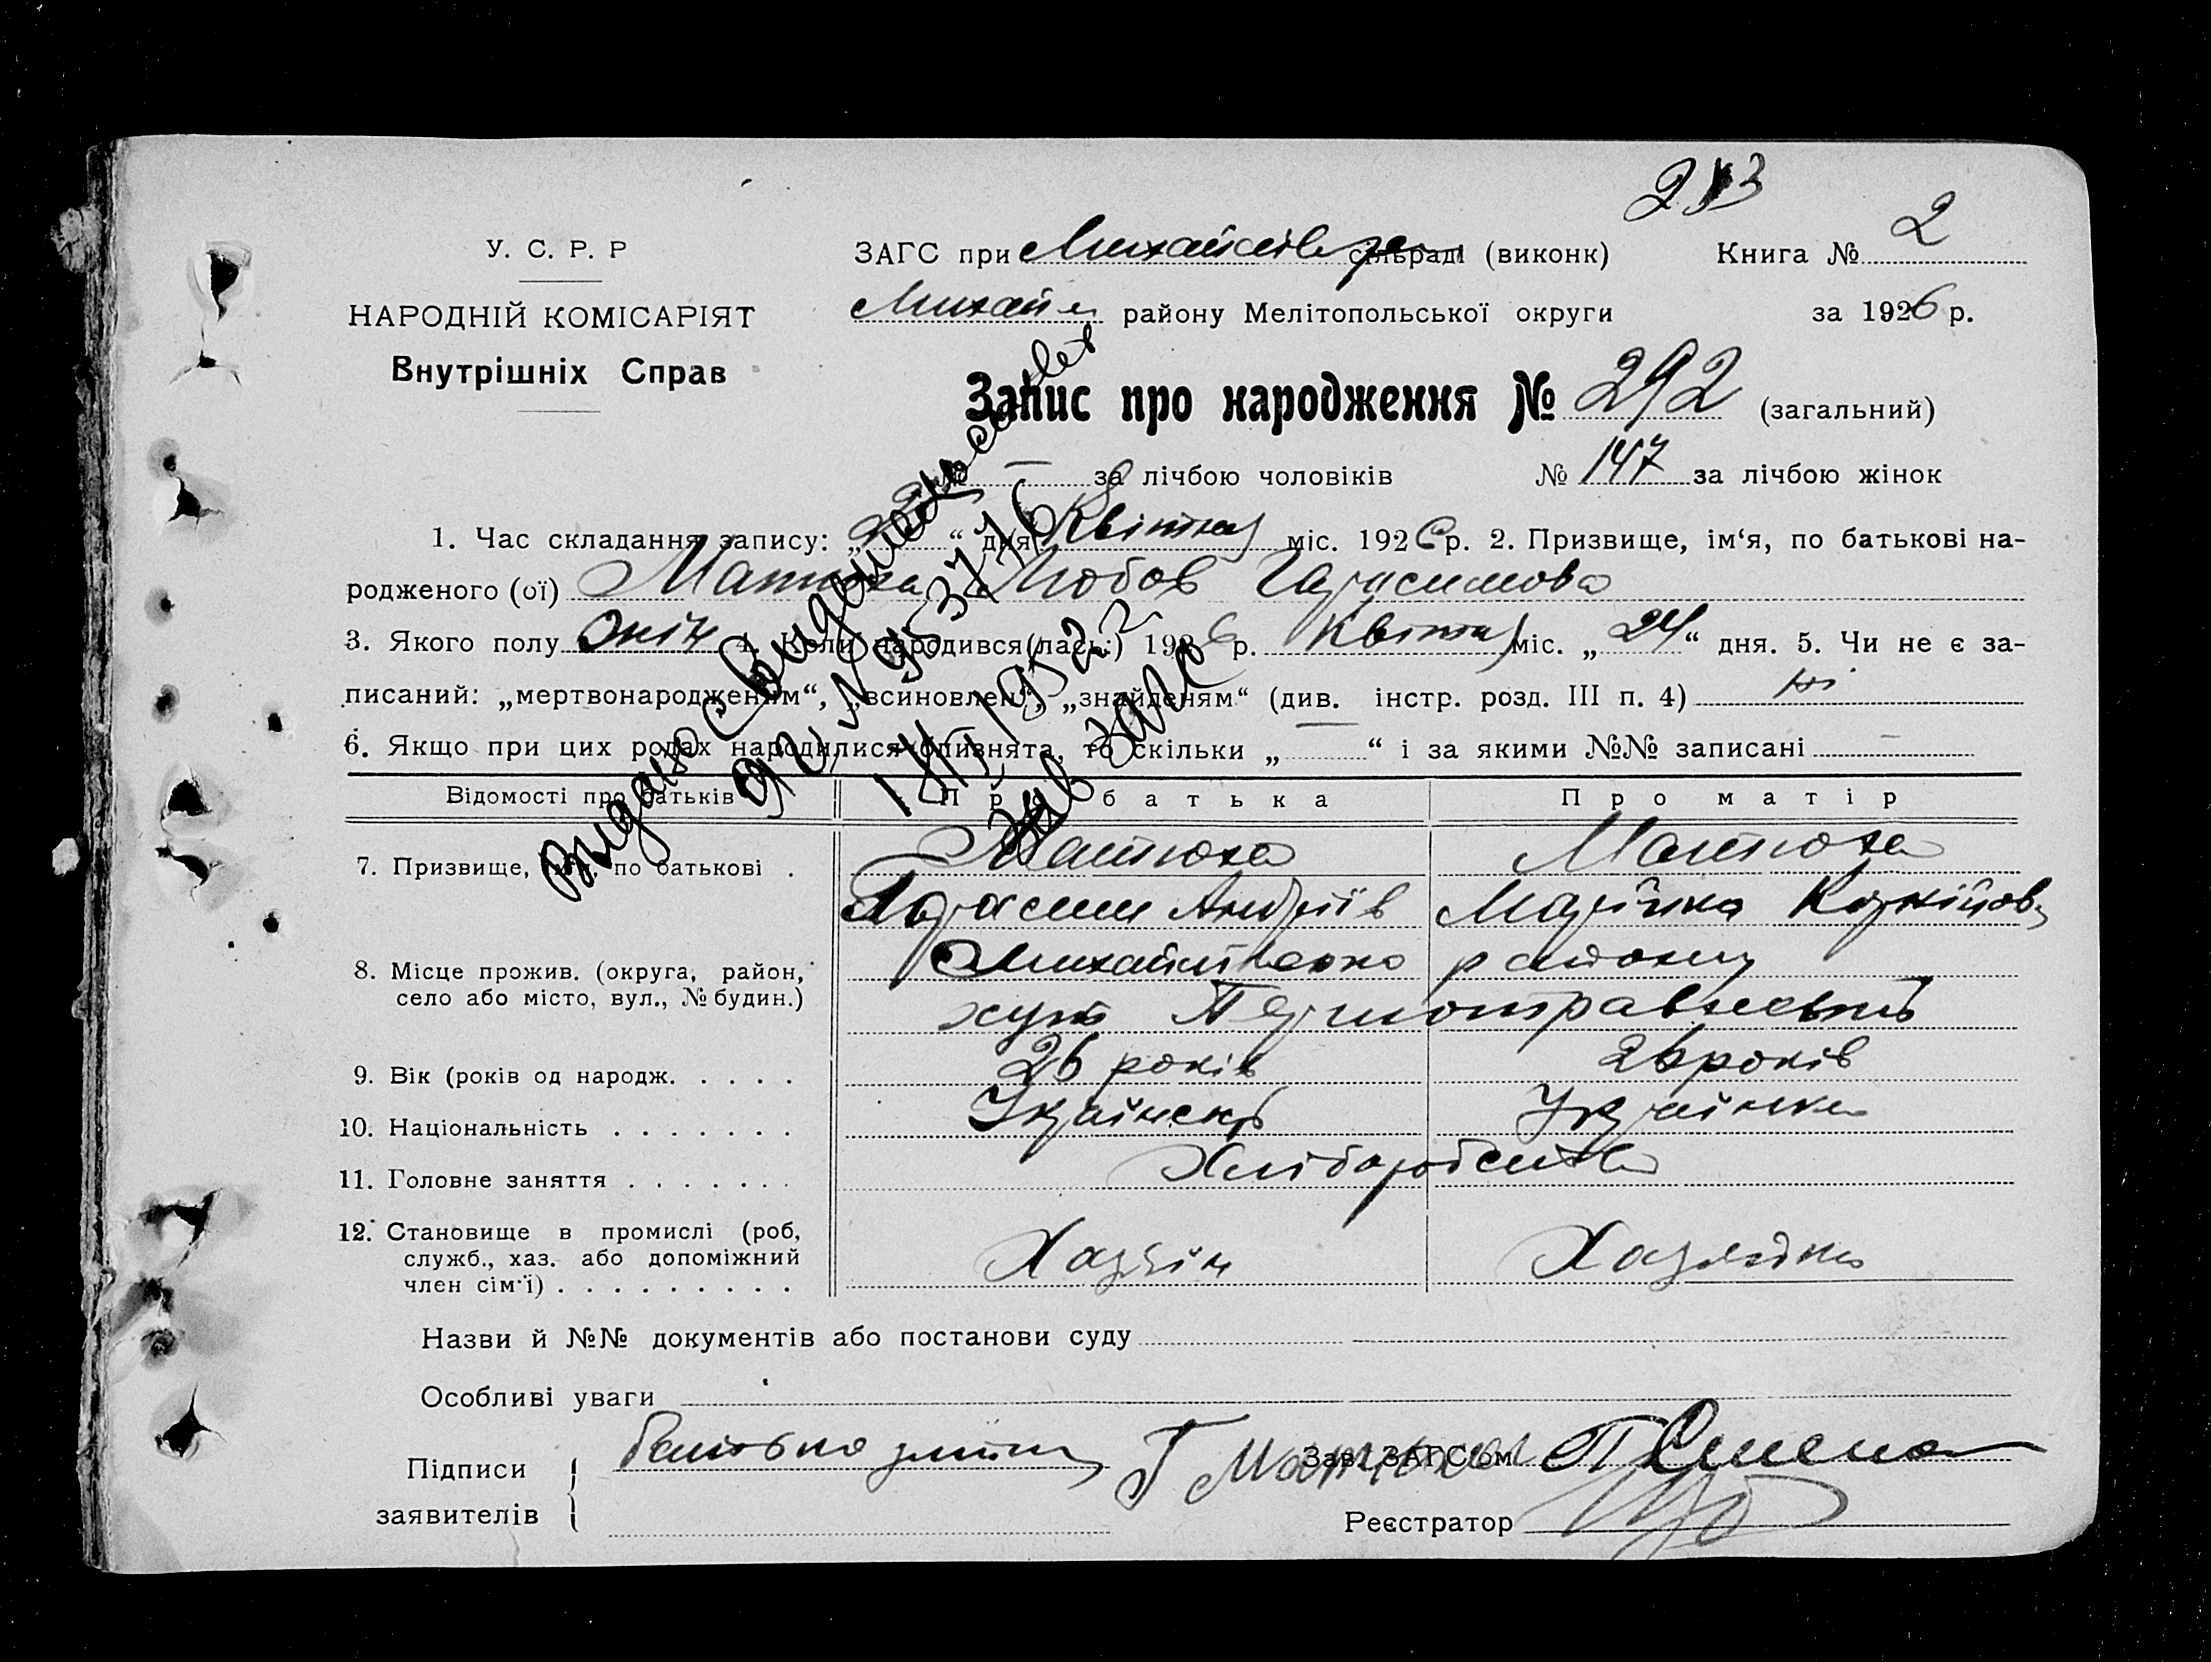 У. С. Р. Р
НАРОДНІЙ КОМІСАРІЯТ
Внутрішніх Справ
ЗАГС при Михайлів сільраді (виконк)
Книга № 2
Михайл району Мелітопольської округи
за 1926 р.
Запис про народження № 292 (загальний)
№ — за лічбою чоловіків № 147 за лічбою жінок
1. Час складання запису: „ “ дня Квітня міс. 1926 р. 2. Призвище, ім‘я, по батькові на-
родженого (ої) Матюха Любов Гарасимова
3. Якого полу жін 4. Коли народився(лась:) 1926 р. Квітня міс. „24“ дня. 5. Чи не є за-
писаний: „мертвонародженим“, „всиновлен“, „знайденям“ (див. інстр. розд. III п. 4) ні
6. Якщо при цих родах народилися близнята, то скільки „—“ і за якими №№ записані —
Видано Свидетельство
№ 953776
1952
Зав загс
Відомості про батьків
Про батька
Про матір
7. Призвище, ім‘я, по батькові .
Матюха
Матюха
Гарасим Андріїв
Марійка
8. Місце прожив. (округа, район,
село або місто, вул., № будин.)
Михайлівсько району
хут
9. Вік (років од народж. . . . .
26 років
26 років
10. Національність . . . . . . .
Українець
Українка
11. Головне заняття . . . . . . .
Хліборобство
12. Становище в промислі (роб,
служб., хаз. або допоміжний
член сім‘ї) . . . . . . . . .
Хазяін
Хазяйка
Назви й №№ документів або постанови суду
Особливі уваги
Підписи
заявителів
батько
Г Матюха
Зав. ЗАГС‘ом
Реєстратор